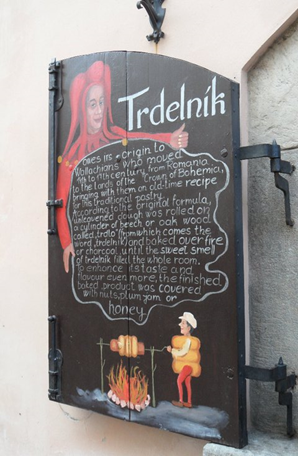 Trdelník
owes its origin to
Wallachians who moved
in to 17th century from Romania
to the lands of the Crown of Bohemia,
bringing with them an old-time recipe
for this traditional pastry.
According to the original formula,
unleavened dough was rolled on
a cylinder of beech or oak wood
called „trdlo“ (from which comes the
word „trdelník) and baked over fire
or charcoal until the sweet smell
of trdelník filled the whole room.
To enhance its taste and
flavour even more, the finished
baked product was covered
with nuts, plum jam or
honey.